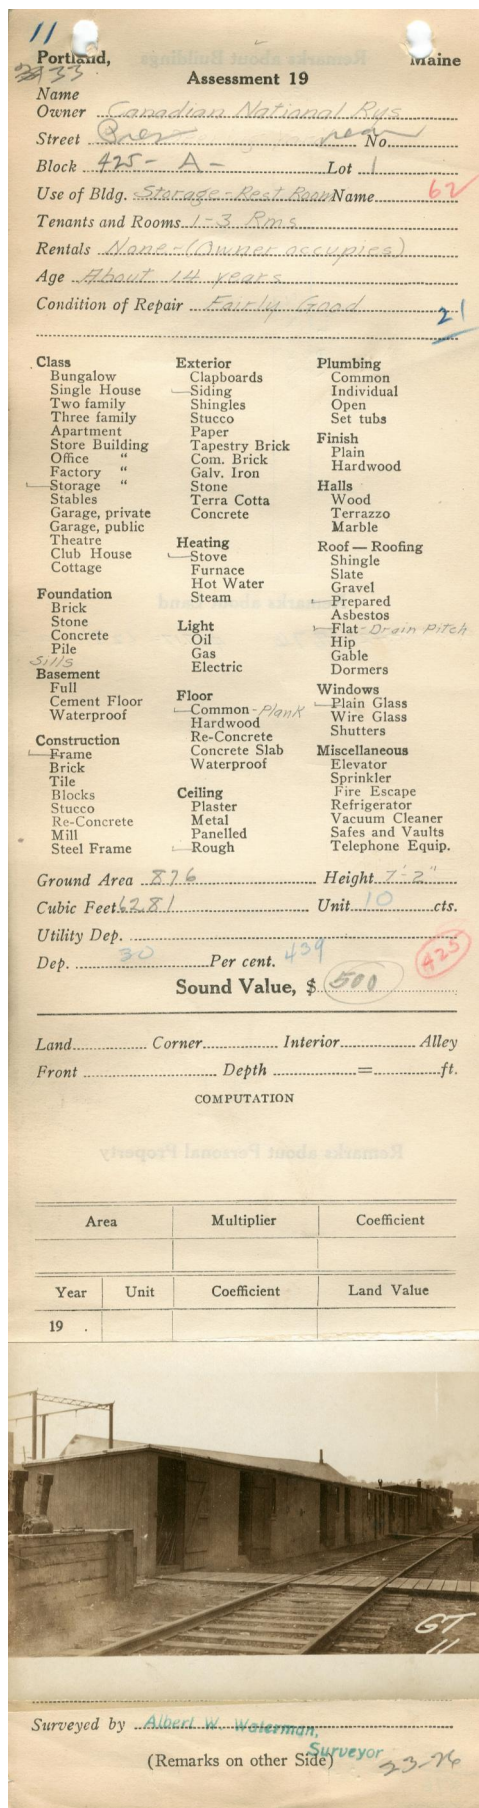 11
Portland, Maine
33
Assessment 19
Name
Owner Canadian National Rys
Street rear No.
Block 425- A- Lot 1
Use of Bldg. Storage-Rest Room Name 62
Tenants and Rooms 1-3 Rms
Rentals None-(Owner occupies)
Age About 14 years
Condition of Repair Fairly Good
21
Class
Bungalow
Single House
Two family
Three family
Apartment
Store Building
Office "
Factory "
Storage "
Stables
Garage, private
Garage, public
Theatre
Club House
Cottage
Foundation
Brick
Stone
Concrete
Pile
Sills
Basement
Full
Cement Floor
Waterproof
Construction
Frame
Brick
Tile
Blocks
Stucco
Re-Concrete
Mill
Steel Frame
Exterior
Clapboards
Siding
Shingles
Stucco
Paper
Tapestry Brick
Com. Brick
Galv. Iron
Stone
Terra Cotta
Concrete
Heating
Stove
Furnace
Hot Water
Steam
Light
Oil
Gas
Electric
Floor
Common - Plank
Hardwood
Re-Concrete
Concrete Slab
Waterproof
Ceiling
Plaster
Metal
Panelled
Rough
Plumbing
Common
Individual
Open
Set tubs
Finish
Plain
Hardwood
Halls
Wood
Terrazzo
Marble
Roof — Roofing
Shingle
Slate
Gravel
Prepared
Asbestos
Flat - Drain Pitch
Hip
Gable
Dormers
Windows
Plain Glass
Wire Glass
Shutters
Miscellaneous
Elevator
Sprinkler
Fire Escape
Refrigerator
Vacuum Cleaner
Safes and Vaults
Telephone Equip.
Ground Area 876 Height 7'-2"
Cubic Feet 6281 Unit 10 cts.
Utility Dep.
Dep. 30 Per cent. 439 425
Sound Value, $ 500
Land Corner Interior Alley
Front Depth = ft.
COMPUTATION
Area Multiplier Coefficient
Year Unit Coefficient Land Value
19 .
GT
11
Surveyed by Albert W. Waterman,
Surveyor
(Remarks on other Side) 23-26